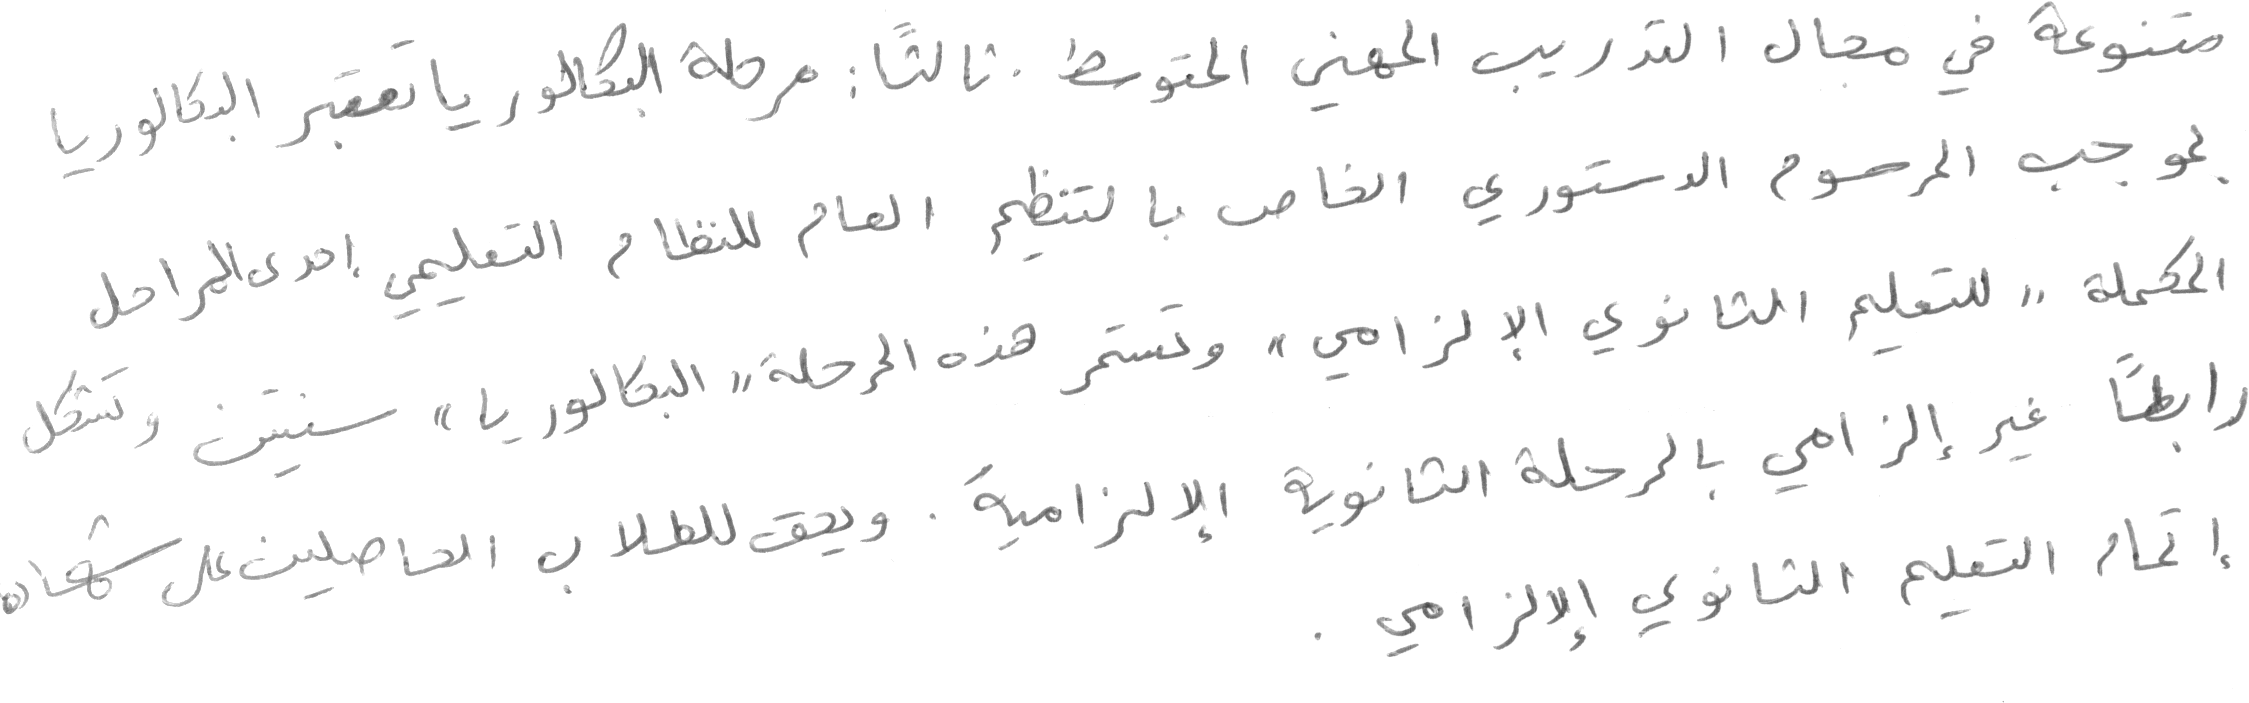 متنوعة في مجال التدريب المهني المتوسط . ثالثًا : مرحلة البكالوريا تعتبر البكالوريا
بموجب المرسوم الدستوري الخاص بالتنظيم العام للنظام التعليمي إحدى المراحل
المكملة " للتعليم الثانوي الإلزامي " وتستمر هذه المرحلة " البكالوريا " سنتين وتشكل
رابطًا غير إلزامي بالمرحلة الثانوية الإلزامية . ويحق للطلاب الحاصلين على شهادة
إتمام التعليم الثانوي الإلزامي .